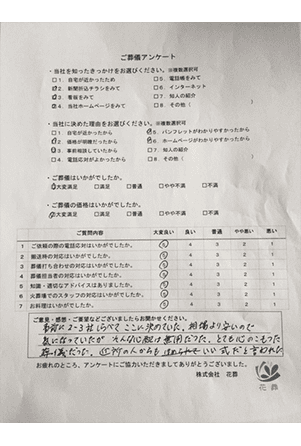 ご葬儀アンケート
・当社を知ったきっかけをお選びください。※複数選択可
□1 自宅が近かったため □5 電話帳をみて
□2 新聞折込チラシをみて □6 インターネット
□3 看板をみて □7 知人の紹介
□4 当社ホームページをみて □8 その他( )
・当社に決めた理由をお選びください。※複数選択可
□1 自宅が近かったから □5 パンフレットがわかりやすかったから
□2 価格が明瞭だったから □6 ホームページがわかりやすかったから
□3 事前相談していたから □7 知人の紹介
□4 電話応対がよかったから □8 その他( )
・ご葬儀はいかがでしたか。
□大変満足 □満足 □普通 □やや不満 □不満
・ご葬儀の価格はいかがでしたか。
□大変満足 □満足 □普通 □やや不満 □不満
ご質問内容 大変良い 良い 普通 やや悪い 悪い
1 ご依頼の際の電話応対はいかがでしたか。 5 4 3 2 1
2 搬送時の対応はいかがでしたか。 5 4 3 2 1
3 葬儀打ち合わせの対応はいかがでしたか。 5 4 3 2 1
4 葬儀担当者の対応はいかがでしたか。 5 4 3 2 1
5 知識・適切なアドバイスはありましたか。 5 4 3 2 1
6 火葬場でのスタッフの対応はいかがでしたか。 5 4 3 2 1
7 お料理はいかがでしたか。 5 4 3 2 1
ご意見・感想・ご要望などございましたらお聞かせください。
事前に2~3社くらべてここに決めていた、相場より安いので
気になっていたが そんな心配は無用だった、とても心のこもった
葬儀だった、近所の人からも いい式だと言われた
お疲れのところ、アンケートにご協力いただきましてありがとうございました。
株式会社 花葬
花葬